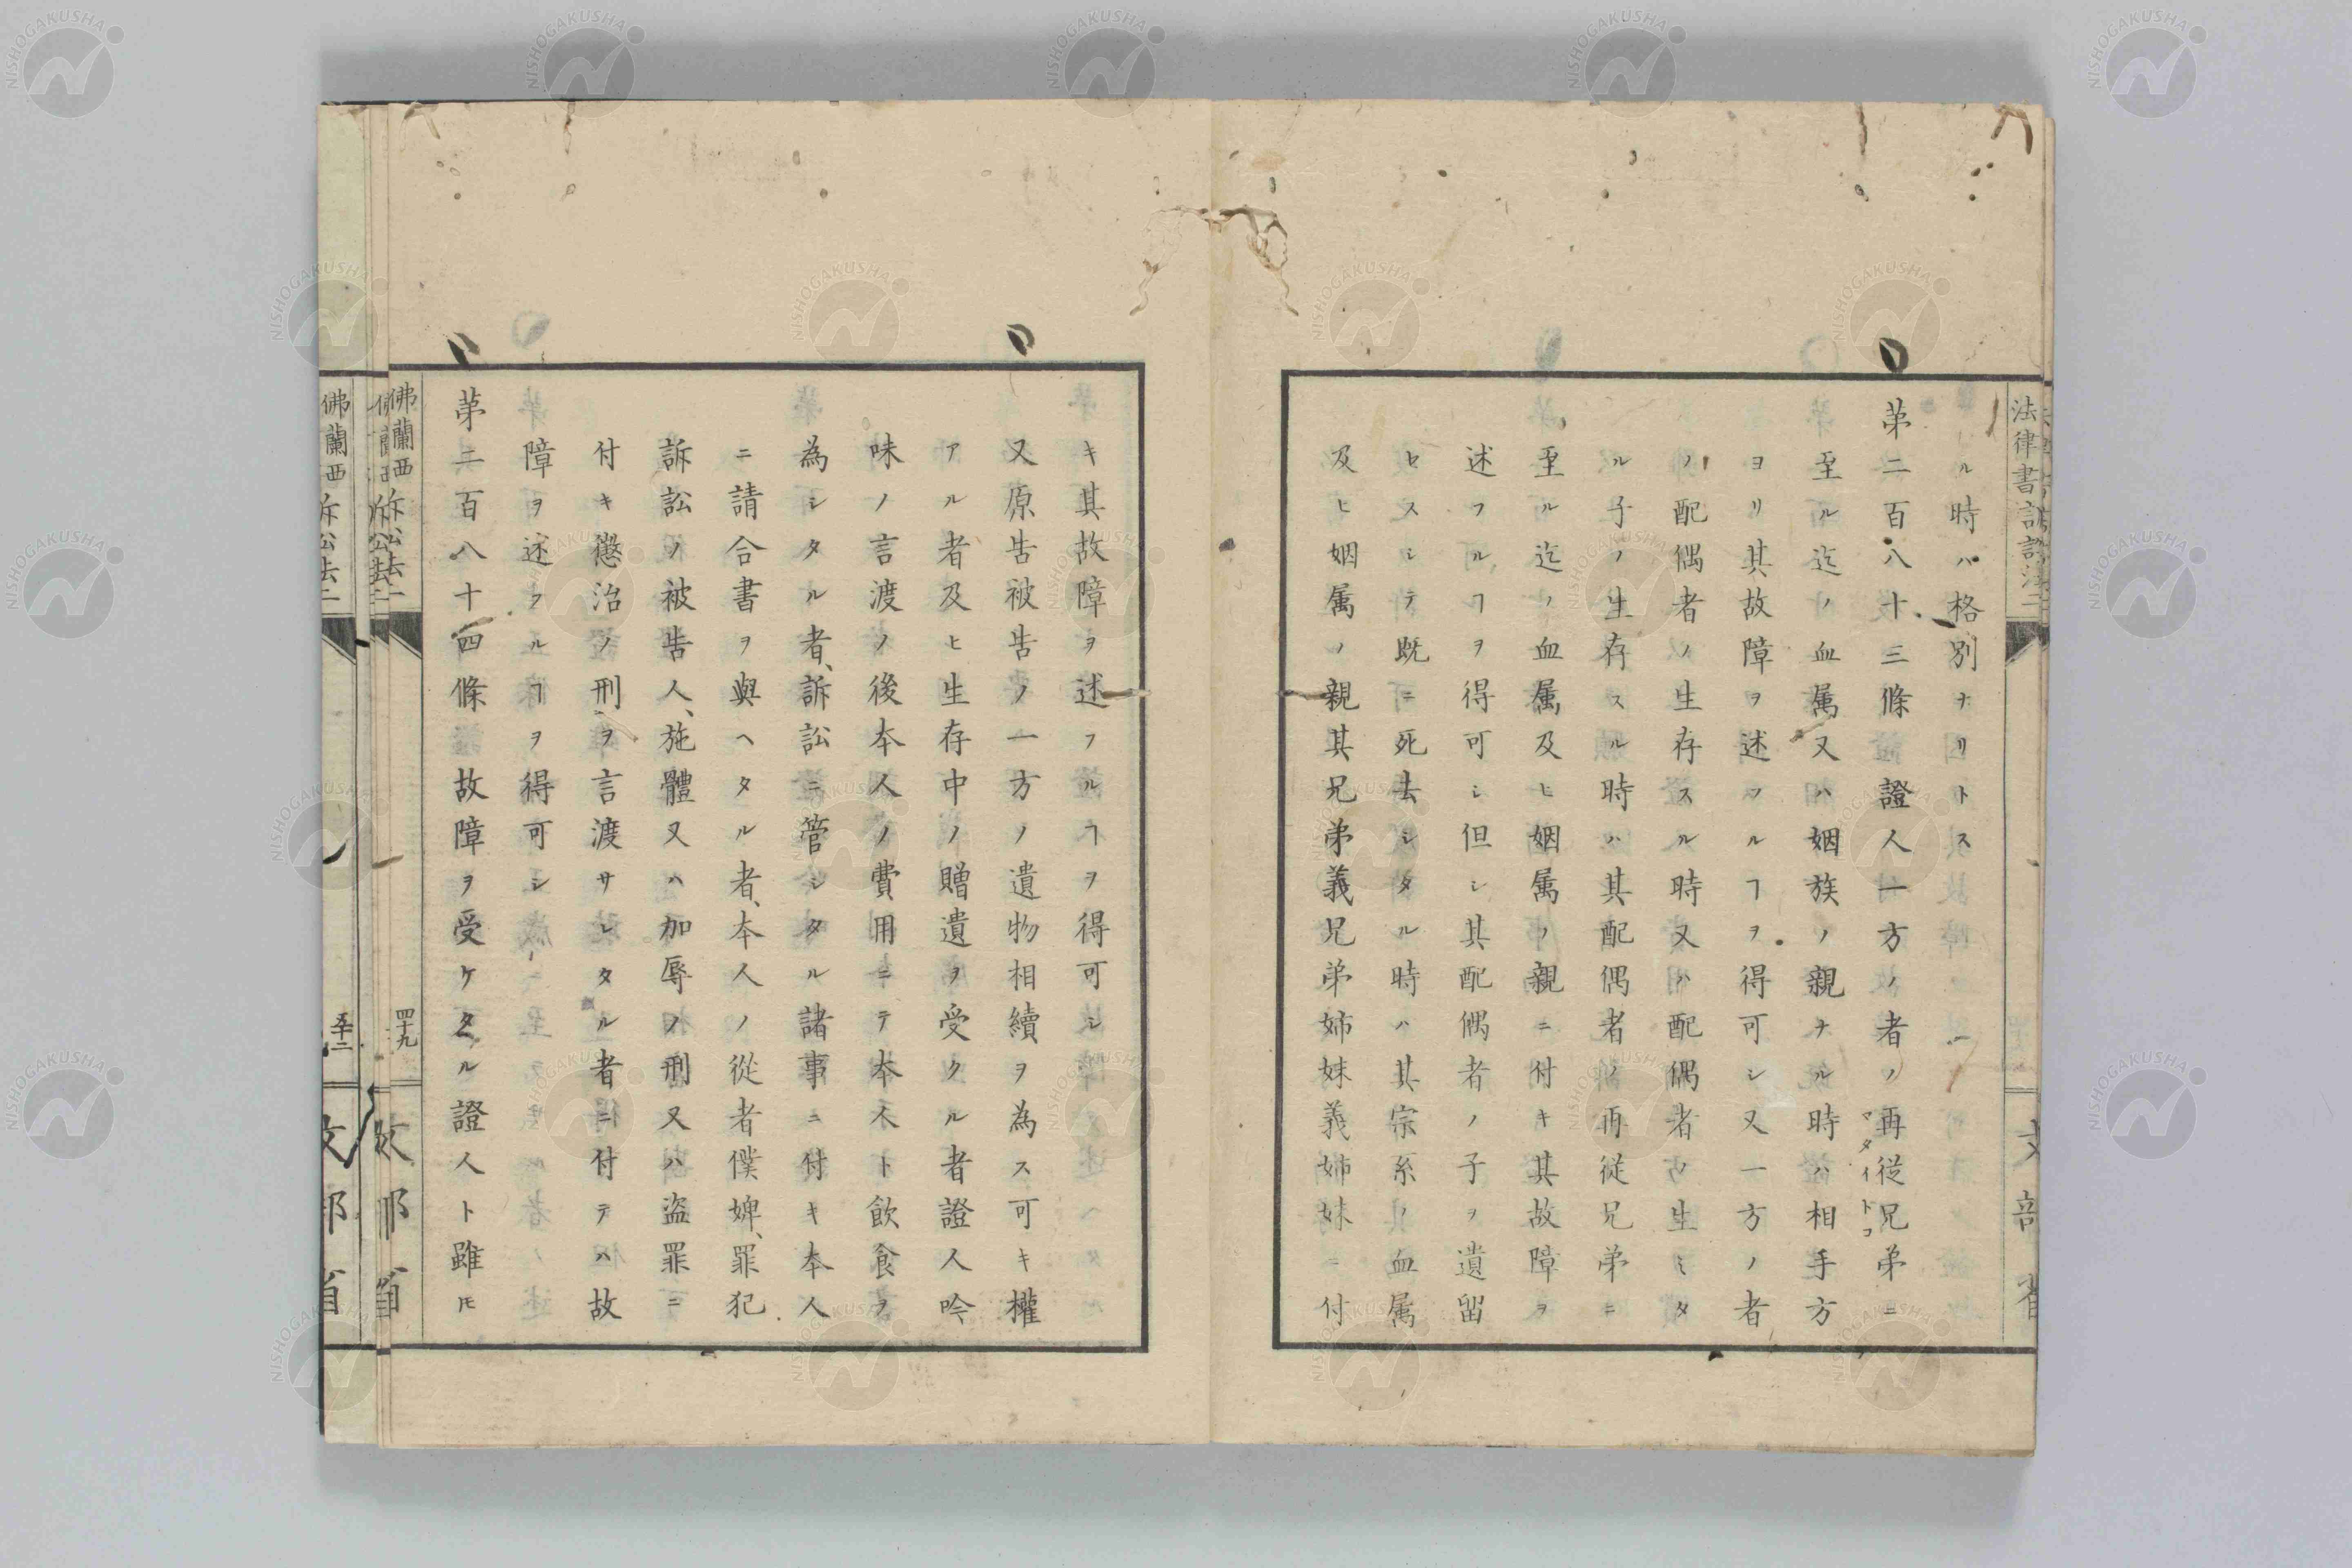 ル時ハ格別ナリトス
苐二百八十三條 證人一方ノ者ノ再従兄弟ニ
マタイトコ
至ル迄ノ血属又ハ姻族ノ親ナル時ハ相手方
ヨリ其故障ヲ述フルヿヲ得可シ又一方ノ者
ノ配偶者ノ生存スル時又ハ配偶者ノ生ミタ
ル子ノ生存スル時ハ其配偶者ノ再従兄弟ニ
至ル迄ノ血属及ヒ姻属ノ親ニ付キ其故障ヲ
述フルヿヲ得可シ但シ其配偶者ノ子ヲ遺留
セスシテ既ニ死去シタル時ハ其宗系ノ血属
及ヒ姻属ノ親其兄弟義兄弟姉妹義姉妹ニ付
キ其故障ヲ述フルヿヲ得可シ
又原告被告ノ一方ノ遺物相續ヲ為ス可キ權
アル者及ヒ生存中ノ贈遺ヲ受クル者證人吟
味ノ言渡ノ後本人ノ費用ニテ本人ト飲食ヲ
為シタル者、訴訟ニ管シタル諸事ニ付キ本人
ニ請合書ヲ與ヘタル者、本人ノ從者僕婢、罪犯
訴訟ノ被告人、施體又ハ加辱ノ刑又ハ盗罪ニ
付キ懲治ノ刑ヲ言渡サレタル者ニ付テハ故
障ヲ述フルヿヲ得可シ
苐二百八十四條 故障ヲ受ケタル證人ト雖𪜈
佛蘭西訴訟法二
四十九
五十二
文部省
NISHOGAKUSHA